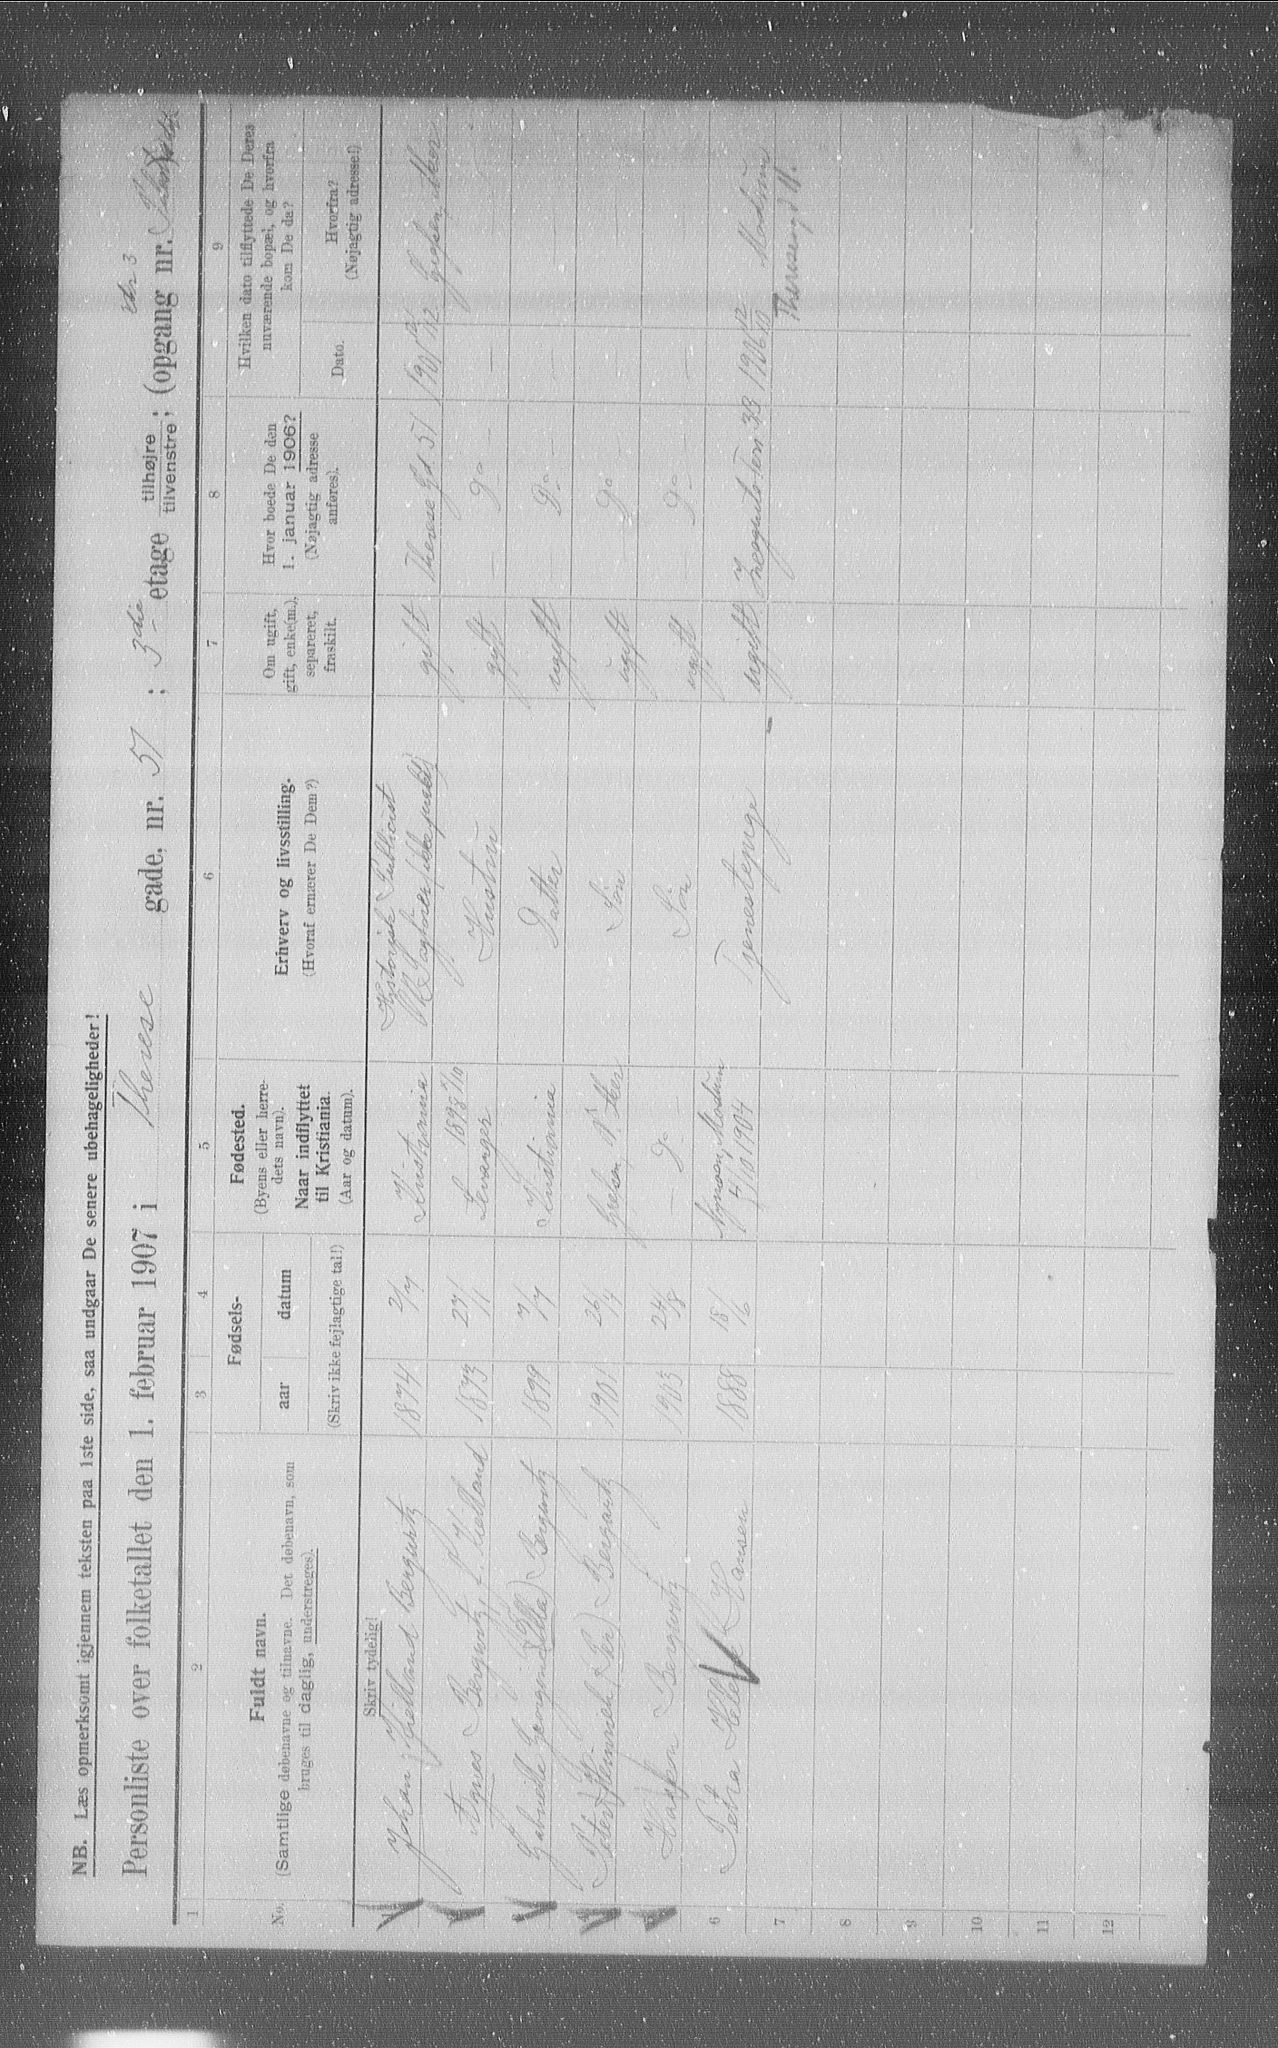 NB. Læs opmerksomt igjennem teksten paa 1ste side, saa undgaar De senere ubehageligheder!
Personliste over folketallet den 1. februar 1907 i Therese gade, nr. 51 ; 3die etage tilhøjre ; (opgang nr.
tilvenstre ;
1 2 3 4 5 6 7 8 9
No.
Fuldt navn.
(Samtlige døbenavne og tilnavne. Det døbenavn, som
bruges til daglig, understreges).
Fødsels-
aar datum
(Skriv ikke fejlagtige tal!)
Fødested.
(Byens eller herre-
dets navn).
Naar indflyttet
til Kristiania.
(Aar og datum).
Erhverv og livsstilling.
(Hvoraf ernærer De Dem?)
Om ugift,
gift, enke(m.),
separeret,
fraskilt.
Hvor boede De den
1. januar 1906?
(Nøjagtig adresse
anføres).
Hvilken dato tilflyttede De Deres
nuværende bopæl, og hvorfra
kom De da?
Dato.
Hvorfra?
(Nøjagtig adresse!)
Skriv tydelig!
1 Johan Kielland Bergwitz 1874 2/7 Kristiania Historisk Publicist gift Therese Gd 51
2 Agnes Bergwitz f. Kielland 1873 27/1 Levanger Hustru gift — Do —
3 Gabrielle Georgine (Ella) Bergwitz 1899 Kristiania Datter ugift — Do —
4 Peter Heinrich (Per) Bergwitz 1901 26/4 Grefsen V. Aker Søn ugift Do
5 Haakon Bergwitz 1903 24/8 — Do — Søn ugift Do —
6 Petra Helene Hansen 1888 18/6 Modum 1904 Tjenestepige ugift 33 1906 Modum
Theresegd
7
8
9
10
11
12